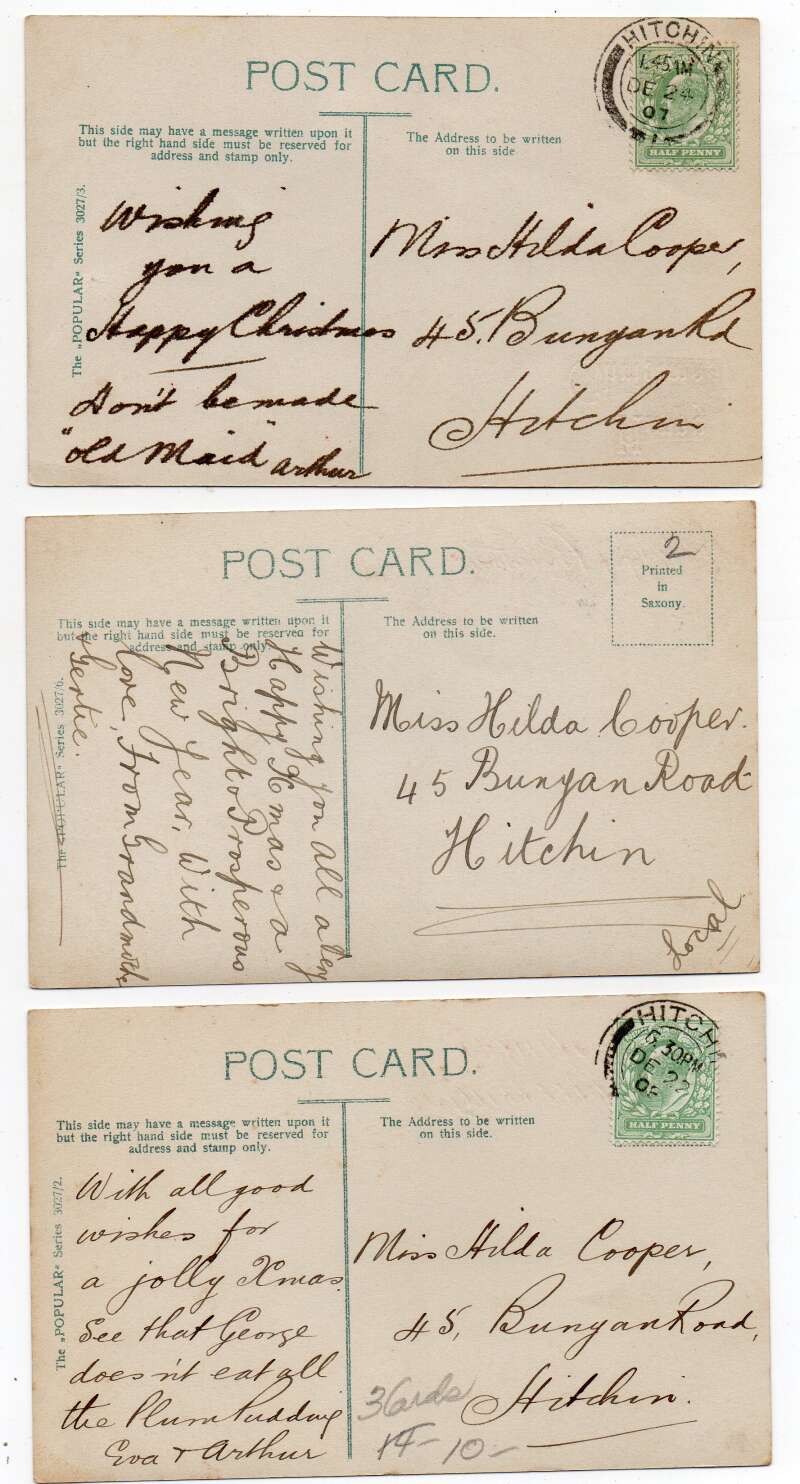 POST CARD.
This side may have a message written upon it
but the right hand side must be reserved for
address and stamp only.
The Address to be written
on this side
HITCHIN
1.45 AM
DE 24
07
HALF PENNY
The „POPULAR" Series 3027/3.
Wishing
you a
Happy Christmas
Don't be made
"old Maid"
Arthur
Miss Hilda Cooper,
45, Bunyan Rd
Hitchin
POST CARD.
This side may have a message written upon it
but the right hand side must be reserved for
address and stamp only.
The Address to be written
on this side.
2
Printed
in
Saxony.
The „POPULAR" Series 3027/6.
Wishing you all a very
Happy Xmas & a
Bright & Prosperous
New Year. With
love, From Grandmother
& Gertie.
Miss Hilda Cooper.
45 Bunyan Road
Hitchin
POST CARD.
This side may have a message written upon it
but the right hand side must be reserved for
address and stamp only.
The Address to be written
on this side.
HITCH
6.30PM
DE 22
HALF PENNY
The „POPULAR" Series 3027/2.
With all good
wishes for
a jolly Xmas.
See that George
does n't eat all
the Plum Pudding
Eva & Arthur
Miss Hilda Cooper,
45, Bunyan Road,
Hitchin.
3 Cards
10-